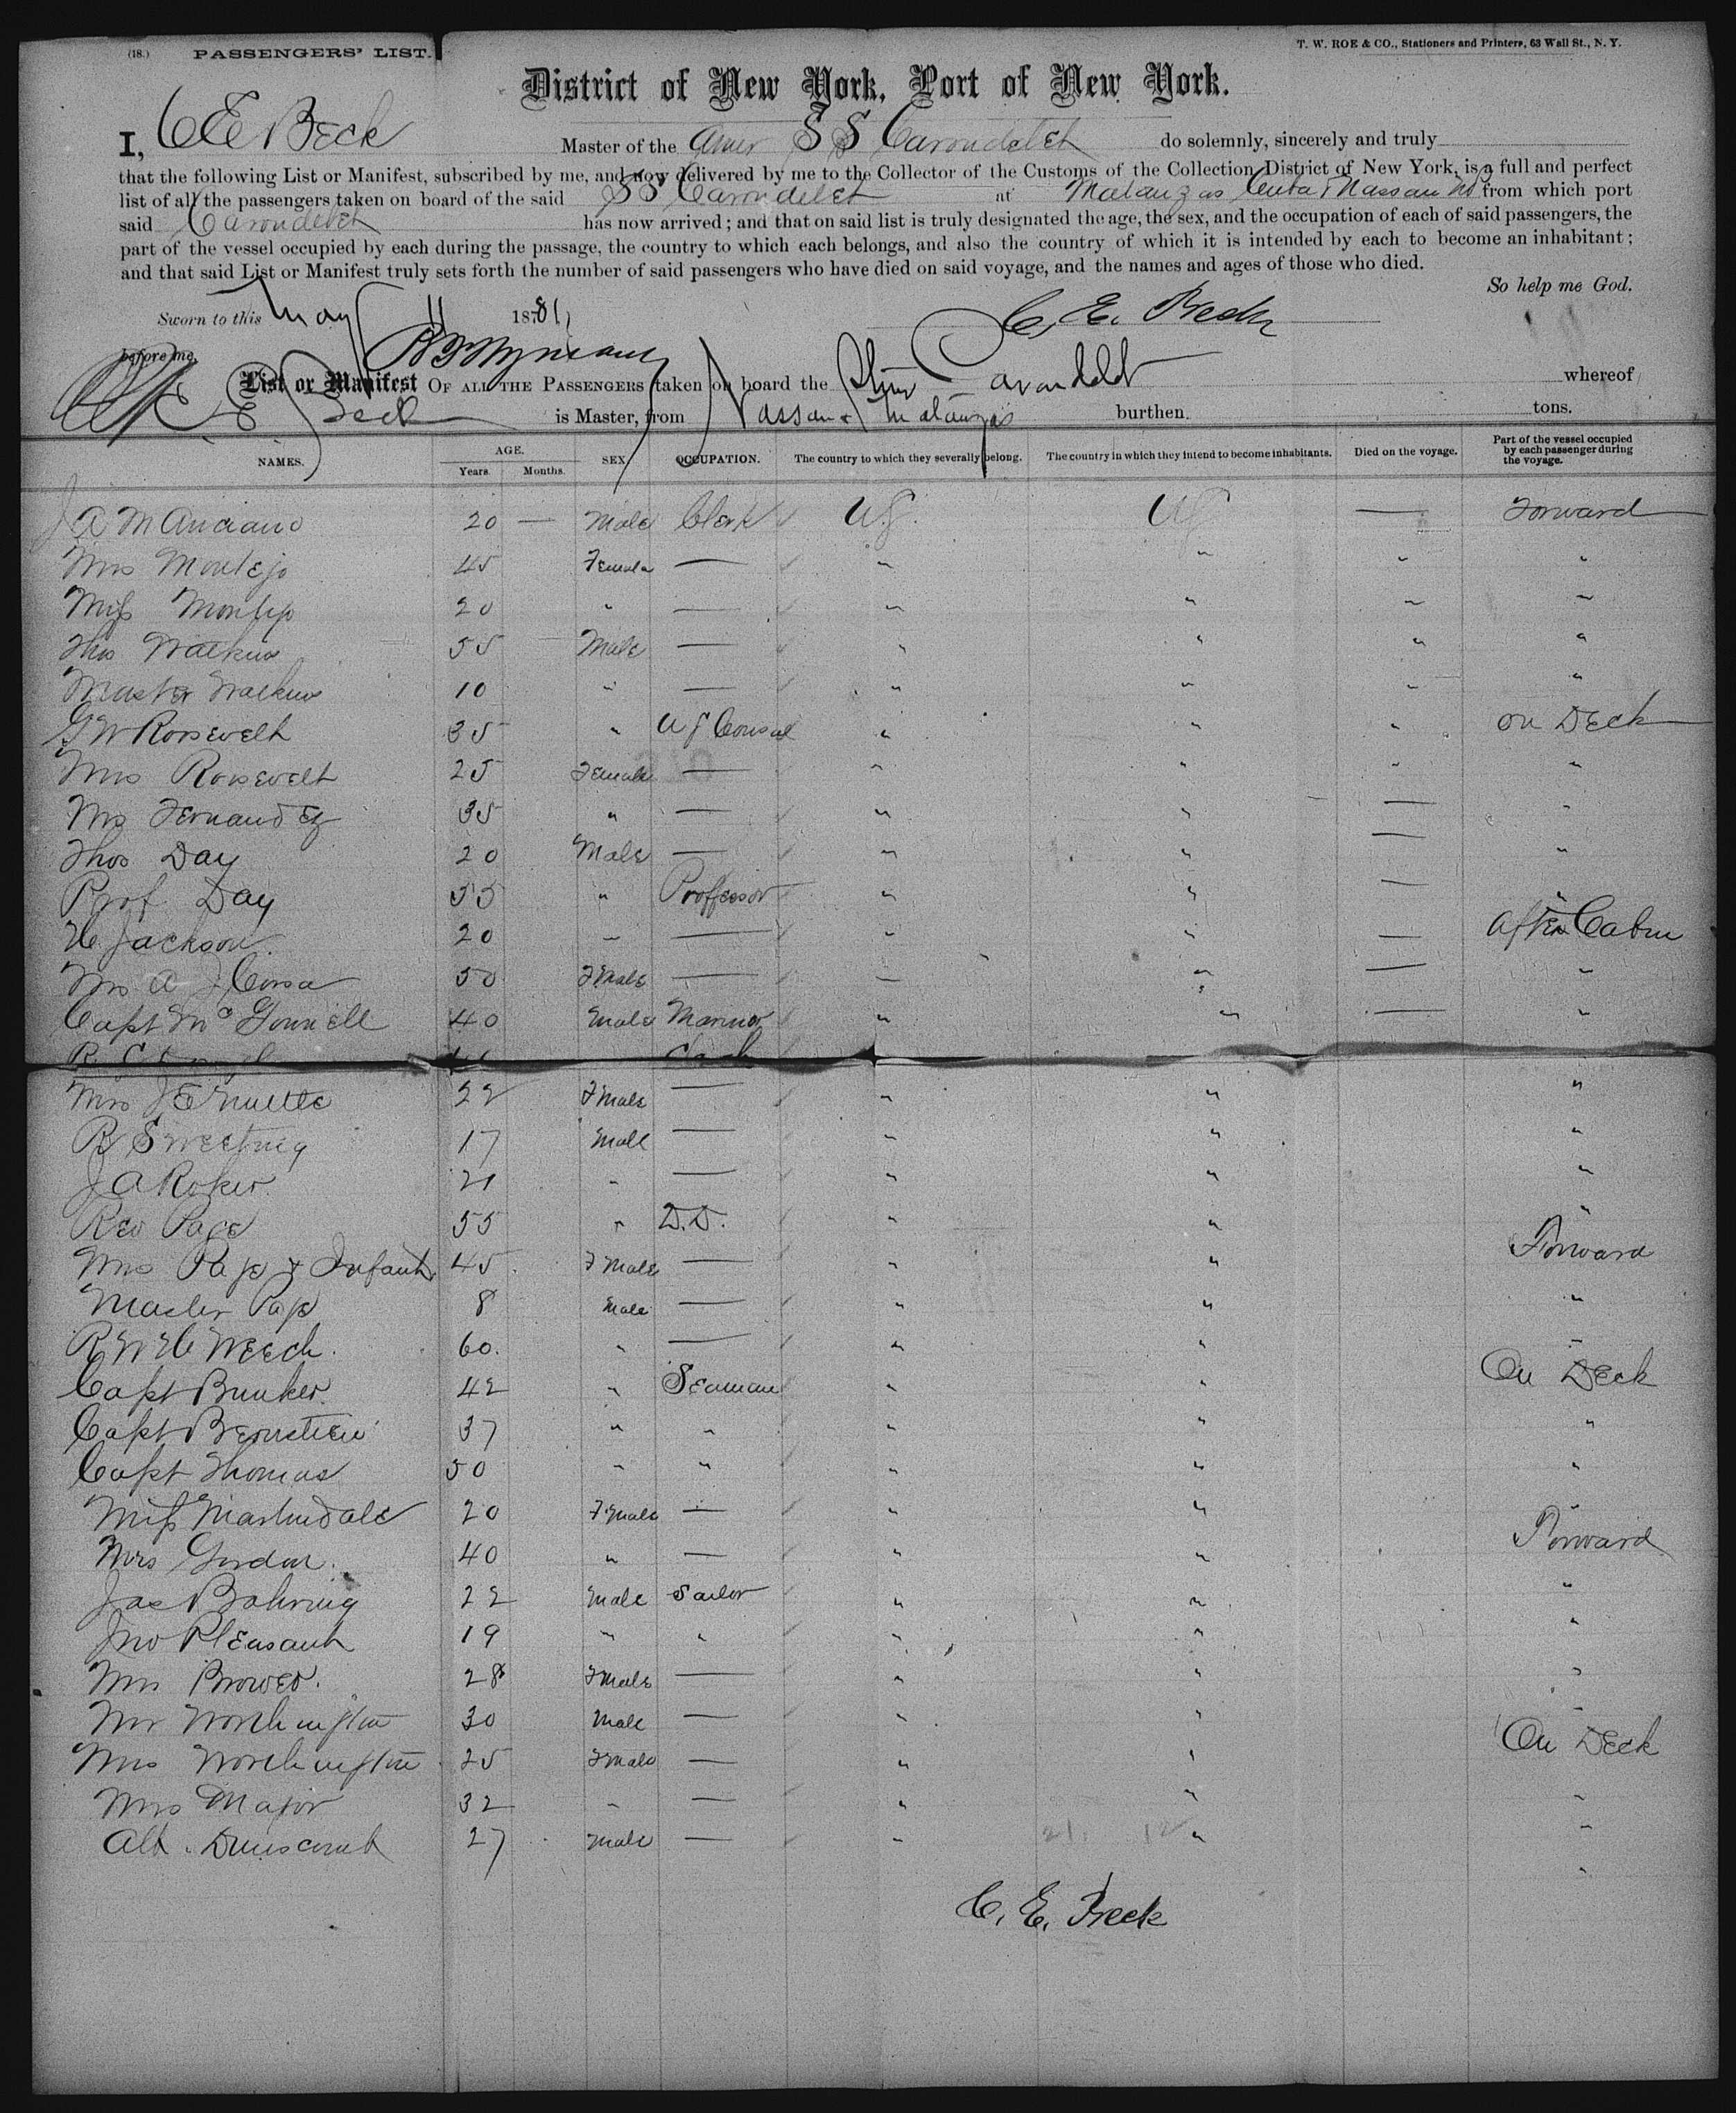 (18.) PASSENGERS' LIST.
T. W. ROE & CO., Stationers and Printers, 63 Wall St., N. Y.
District of New York, Port of New York.
I, C E Beck Master of the Amer S S Carondelet do solemnly, sincerely and truly
that the following List or Manifest, subscribed by me, and now delivered by me to the Collector of the Customs of the Collection District of New York, is a full and perfect
list of all the passengers taken on board of the said S S Carondelet at Matanzas Cuba & Nassau NP from which port
said Carondelet has now arrived; and that on said list is truly designated the age, the sex, and the occupation of each of said passengers, the
part of the vessel occupied by each during the passage, the country to which each belongs, and also the country of which it is intended by each to become an inhabitant;
and that said List or Manifest truly sets forth the number of said passengers who have died on said voyage, and the names and ages of those who died.
So help me God.
Sworn to this May 11 1881
C. E. Beck
before me,
List or Manifest OF ALL THE PASSENGERS taken on board the Stmr Carondelet whereof
C E Beck is Master, from Nassau & Matanzas burthen. tons.
NAMES. AGE. Years. Months. SEX. OCCUPATION. The country to which they severally belong. The country in which they intend to become inhabitants. Died on the voyage. Part of the vessel occupied by each passenger during the voyage.
J A M Anciano 20 — Male Clerk US. US — Forward
Mrs Montejo 45 Female — " " " "
Miss Montejo 20 " — " " " "
Thos Watkins 55 Male — " " " "
Master Watkins 10 " — " " " "
G W Roosevelt 35 " U S Consul " " " on Deck
Mrs Roosevelt 25 Female — " " " "
Mrs Fernandez 35 " — " " — "
Thos Day 20 Male — " " — "
Prof Day 55 " Proffessor " " — "
H Jackson 20 " — " " — After Cabin
Mrs A J Corsa 50 Female — " " — "
Capt McGonnell 40 Male Mariner " " — "
R. Clerk
Mrs J E 22 Female — " " "
R Sweeting 17 Male — " " "
J A Roker 21 " — " " "
Rev Page 55 " D.D. " " "
Mrs Page & Infant 45 Female — " " Forward
Master Page 8 Male — " " "
R W H Weech. 60. " — " " "
Capt Bunker 42 " Seaman " " On Deck
Capt Bernstien 37 " " " " "
Capt Thomas 50 " " " " "
Miss Martindale 20 Female — " " "
Mrs Gordon. 40 " — " " Forward
Jas Bohring 22 Male Sailor " " "
Jno Pleasant 19 " " " " "
Mrs Brower. 28 Female — " " "
Mr Worthington 30 Male — " " "
Mrs Worthington 25 Female — " " On Deck
Mrs Major 32 " — " " "
Alb. Dunscomb 27 Male — " 21. 12 " "
"
C. E. Beck